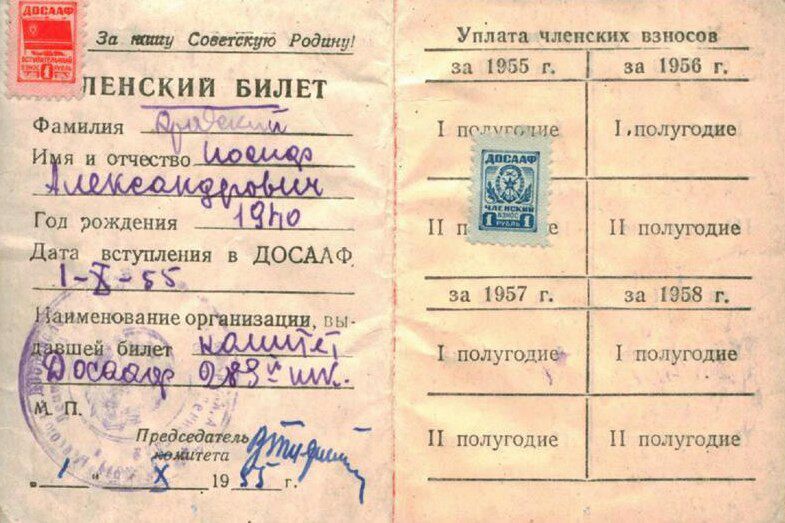 ДОСААФ
ВСТУПИТЕЛЬНЫЙ
ВЗНОС 1 РУБЛЬ
За нашу Советскую Родину!
ЛЕНСКИЙ БИЛЕТ
Фамилия
Имя и отчество Иосиф
Александрович
Год рождения 1940
Дата вступления в ДОСААФ
1-X-55
Наименование организации, вы-
давшей билет комитет
Досааф 289й шк.
М. П.
Председатель
комитета
„ 1 “ X 1955 г.
Уплата членских взносов
за 1955 г. за 1956 г.
I полугодие I полугодие
ДОСААФ
ЧЛЕНСКИЙ
ВЗНОС
1 РУБЛЬ
II п II полугодие
за 1957 г. за 1958 г.
I полугодие I полугодие
II полугодие II полугодие